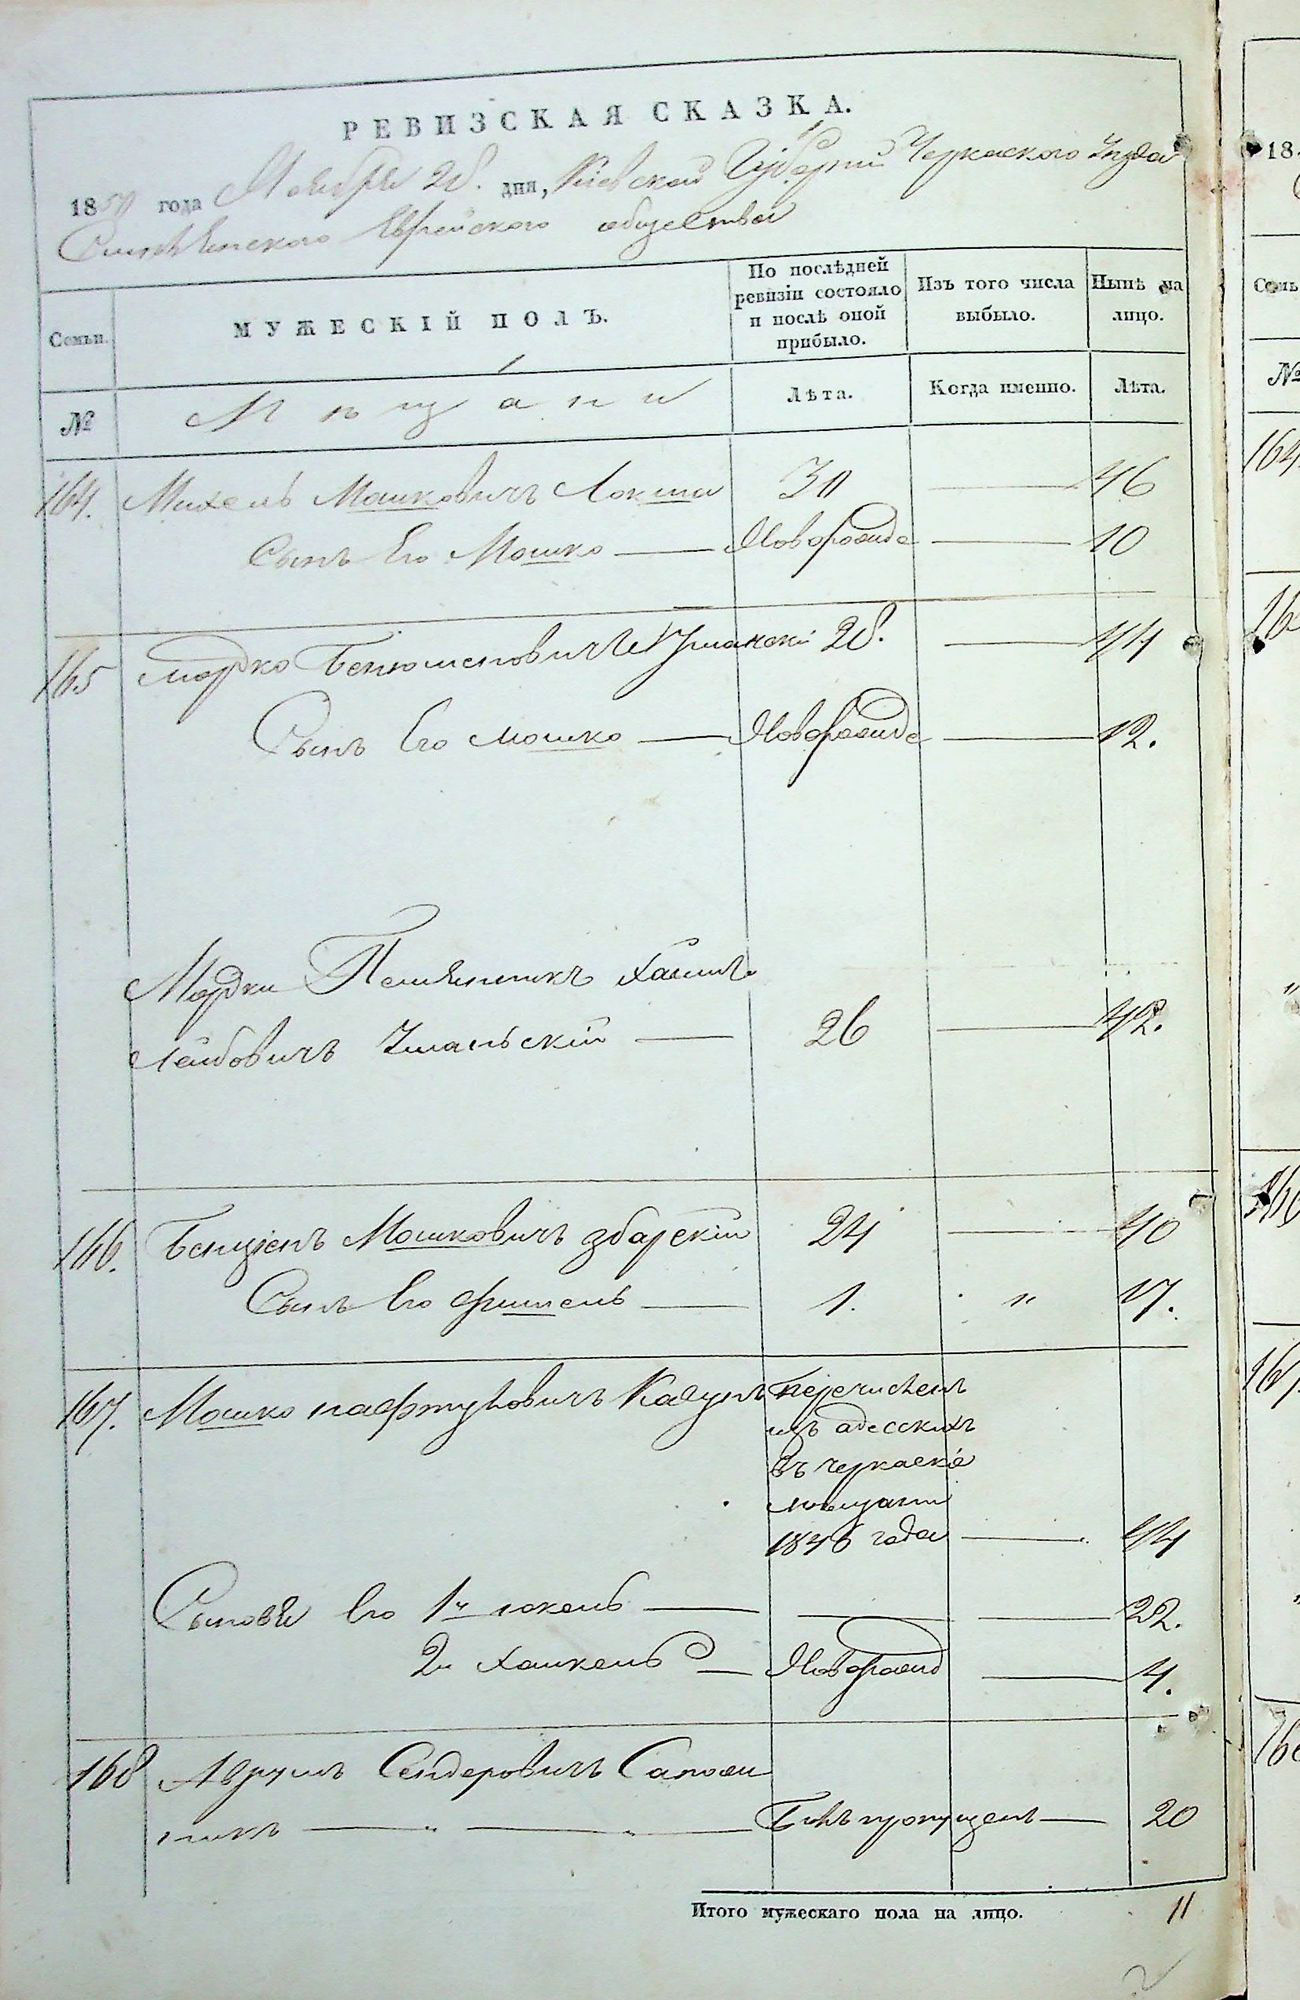 РЕВИЗСКАЯ СКАЗКА.
1858 года Ноября 28. дня, Кіевской Губерніи Черкаского Уезда
Еврейского общества
Семьи.
МУЖЕСКІЙ ПОЛЪ.
По послѣдней ревизіи состояло и послѣ оной прибыло.
Изъ того числа выбыло.
Нынѣ на лицо.
№
Мѣщани
Лѣта.
Когда именно.
Лѣта.
164. Михель Мошковичъ Локша 30 — 46
Сынъ Его Мошко — Новорожде — 10
165 Мордко Бенюменовичъ Уманскі 28. — 44
Сынъ Его Мошко — Новорожде — 12.
Мордки Племянникъ Хаимъ
Лейбовичъ Уманьскій — 26 — 42.
166. Бенціенъ Мошковичъ Збарскій 24 — 40
Сынъ Его Фишель — 1. " 17.
167. Мошко Нафтуловичъ Кагунъ Перечисленъ
изъ адесскихъ
въ черкаскіе
мещани
1846 года — 44
Сыновя Его 1й Іокель — — 22.
2й Хаикель — Новорожд — 4.
168 Аврумъ Сендеровичъ Сапож
никъ — " — " — Былъ пропущенъ — 20
Итого мужескаго пола на лицо. 11